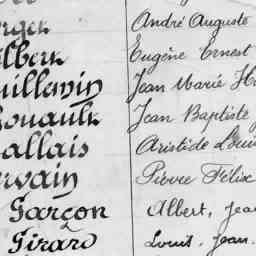 André Auguste
Eugène Ernest
uillemin Jean Marie
Jean Baptiste
allais Aristide Louis
rvain Pierre Félix
Garçon Albert, Jean
Girard Louis, Jean.